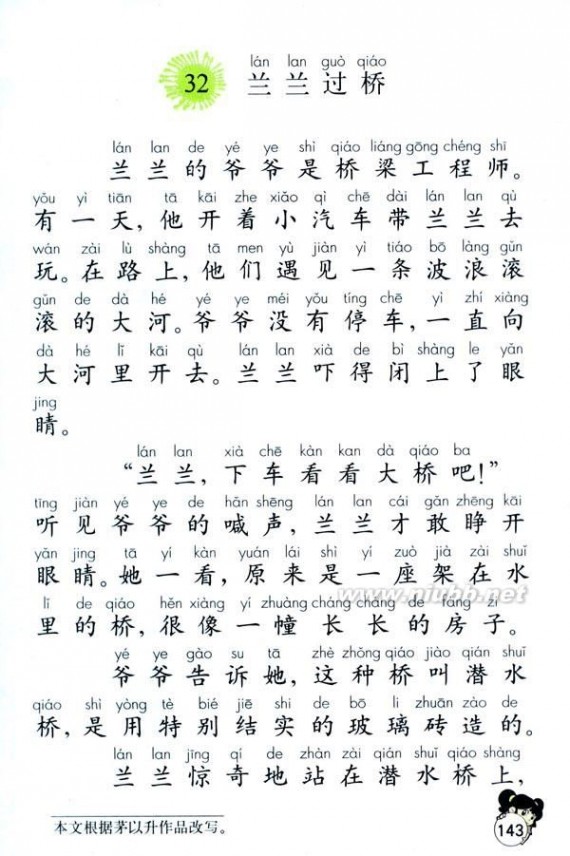 lán lan guò qiáo
32 兰兰过桥
lán lan de yé ye shì qiáo liáng gōng chéng shī
兰兰的爷爷是桥梁工程师。
yǒu yì tiān tā kāi zhe xiǎo qì chē dài lán lan qù
有一天，他开着小汽车带兰兰去
wán zài lù shàng tā men yù jiàn yì tiáo bō làng gǔn
玩。在路上，他们遇见一条波浪滚
gǔn de dà hé yé ye méi yǒu tíng chē yì zhí xiàng
滚的大河。爷爷没有停车，一直向
dà hé lǐ kāi qù lán lan xià de bì shàng le yǎn
大河里开去。兰兰吓得闭上了眼
jing
睛。
lán lan xià chē kàn kan dà qiáo ba
“兰兰，下车看看大桥吧！”
tīng jiàn yé ye de hǎn shēng lán lan cái gǎn zhēng kāi
听见爷爷的喊声，兰兰才敢睁开
yǎn jing tā yí kàn yuán lái shì yí zuò jià zài shuǐ
眼睛。她一看，原来是一座架在水
lǐ de qiáo hěn xiàng yí zhuàng cháng cháng de fáng zi
里的桥，很像一幢长长的房子。
yé ye gào su tā zhè zhǒng qiáo jiào qián shuǐ
爷爷告诉她，这种桥叫潜水
qiáo shì yòng tè bié jiē shi de bō li zhuān zào de
桥，是用特别结实的玻璃砖造的。
lán lan jīng qí de zhàn zài qián shuǐ qiáo shàng
兰兰惊奇地站在潜水桥上，
本文根据茅以升作品改写。
143
www.niubb.net